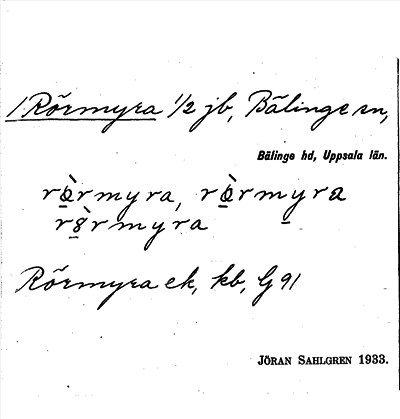 1 Rörmyra 1/2 jb, Bälinge sn,
Bälinge hd, Uppsala län.
rö̀rmyra, rö̀rmyra
rö̀rmyra
Rörmyra ek, kb, G 91
JÖRAN SAHLGREN 1933.